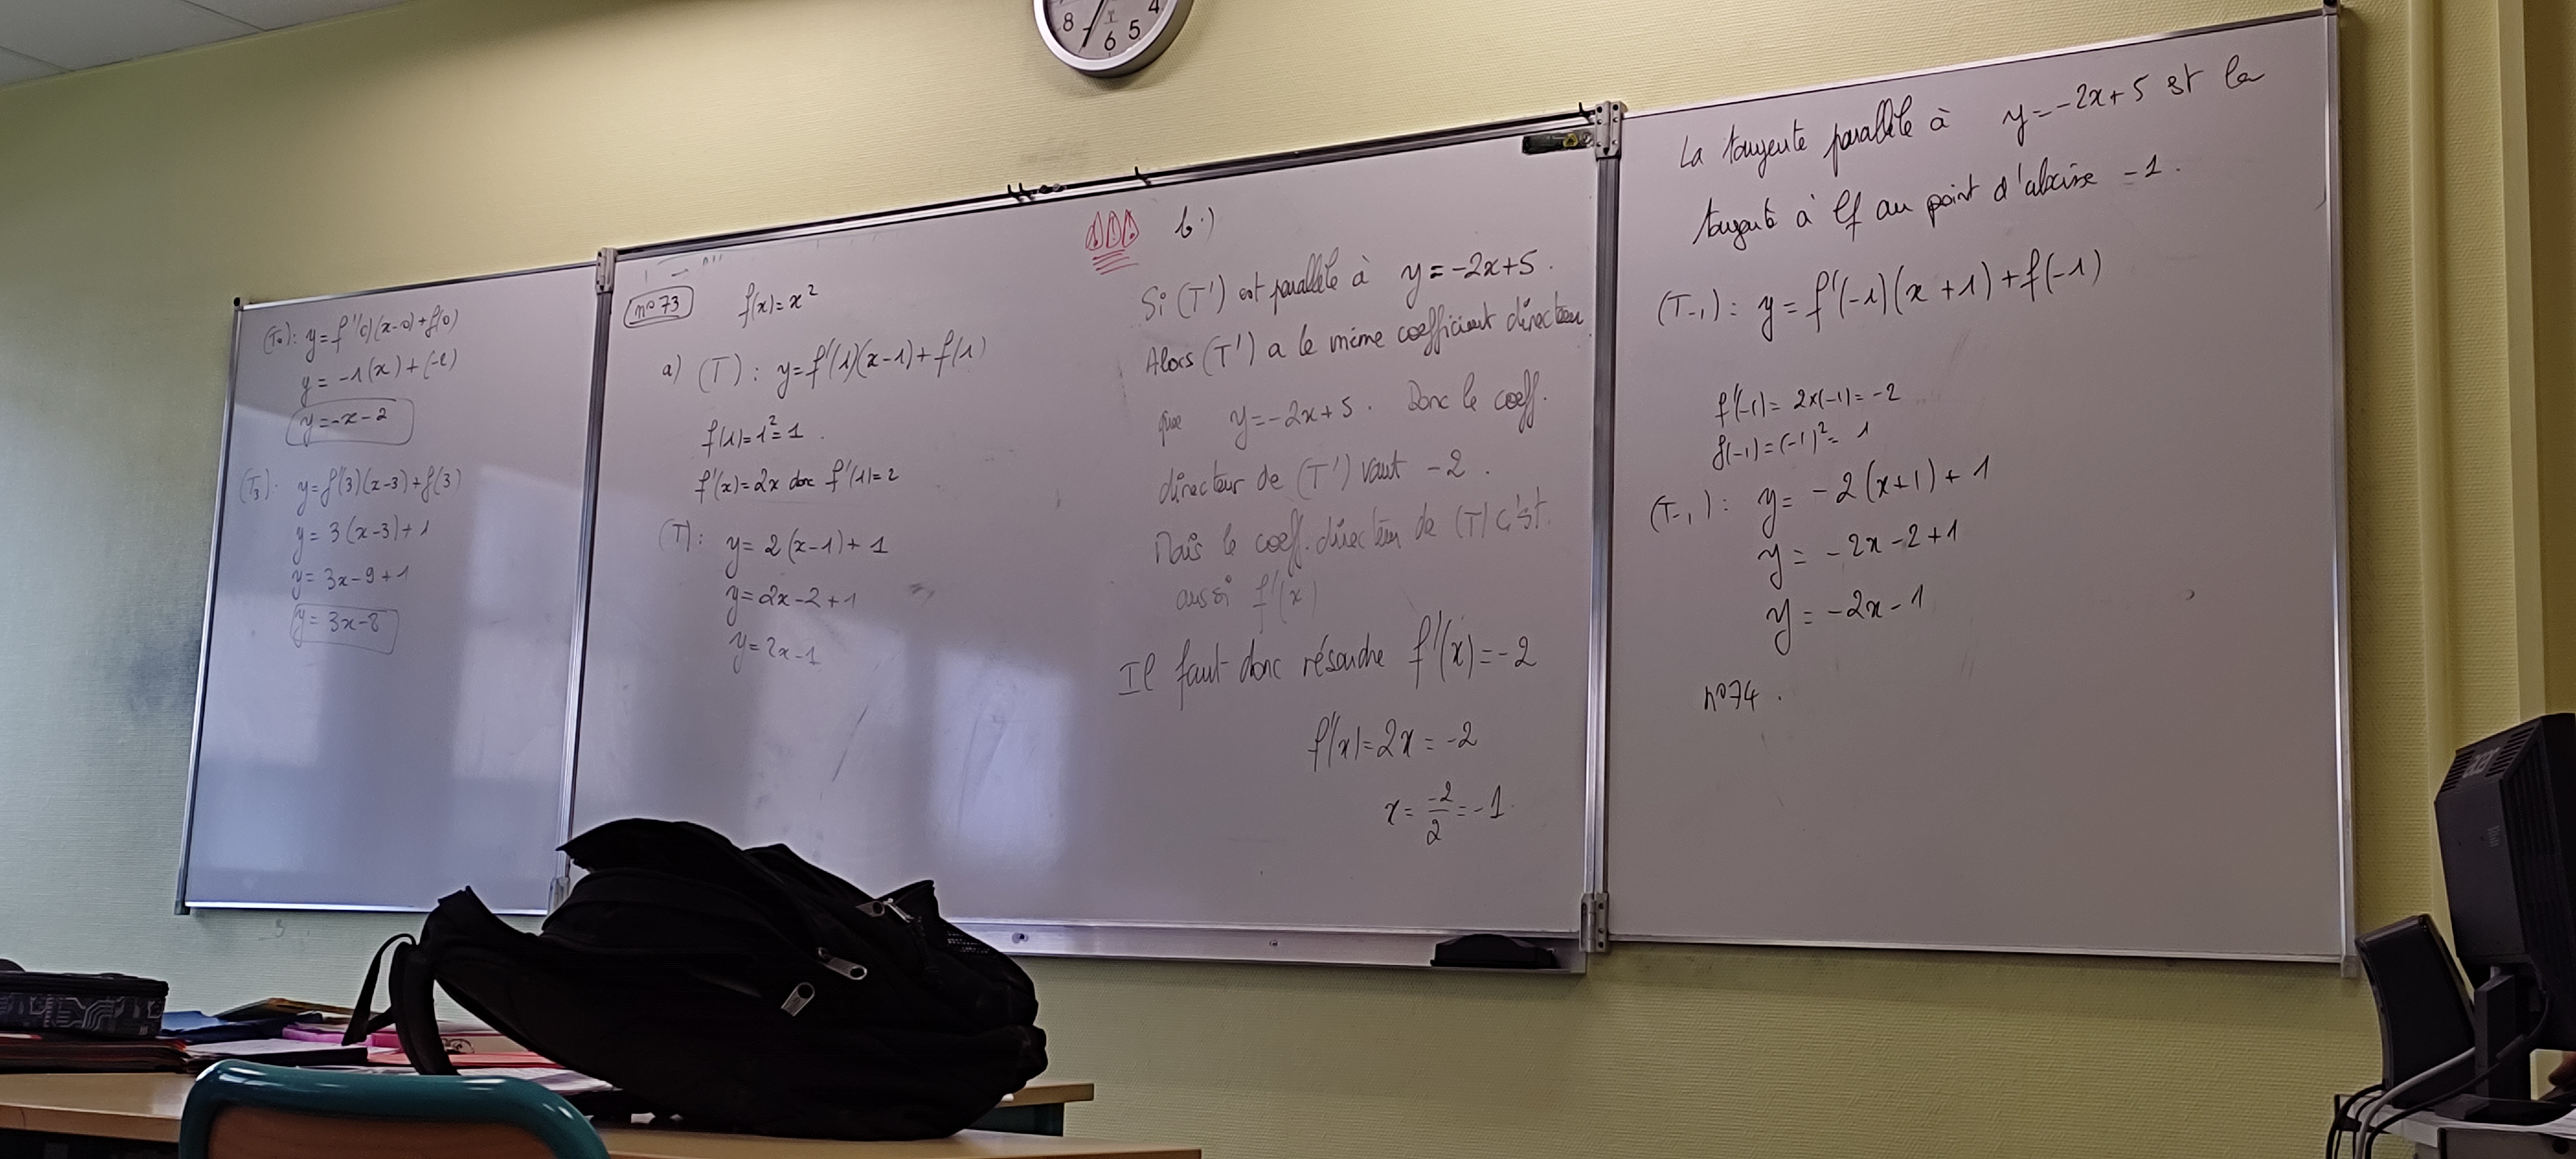 8
6
5
4
(T₀): y = f'(0)(x-0)+f(0)
y = -1(x) + (-2)
y = -x - 2
(T₃): y = f'(3)(x-3)+f(3)
y = 3(x-3)+1
y = 3x-9+1
y = 3x-8
n°73
f(x) = x²
a) (T) : y = f'(1)(x-1)+f(1)
f(1) = 1² = 1 .
f'(x) = 2x donc f'(1) = 2
(T): y = 2(x-1)+1
y = 2x-2+1
y = 2x-1
b.)
Si (T') est parallèle à y = -2x+5 .
Alors (T') a le même coefficient directeur
que y = -2x+5 . Donc le coeff.
directeur de (T') vaut -2 .
Mais le coeff. directeur de (T) c'est
aussi f'(x)
Il faut donc résoudre f'(x) = -2
f'(x) = 2x = -2
x = -2/2 = -1
La tangente parallèle à y = -2x+5 est la
tangente à Cf au point d'abscisse -1 .
(T-1) : y = f'(-1)(x+1)+f(-1)
f'(-1) = 2x(-1) = -2
f(-1) = (-1)² = 1
(T-1) : y = -2(x+1)+1
y = -2x-2+1
y = -2x-1
n°74 .
acer